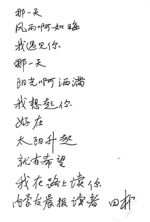 那一天
风雨啊如晦
我遇见你
那一天
阳光啊洒满
我想起你
好在
太阳升起
就有希望
我在路上读你
内蒙古晨报读者 田彬